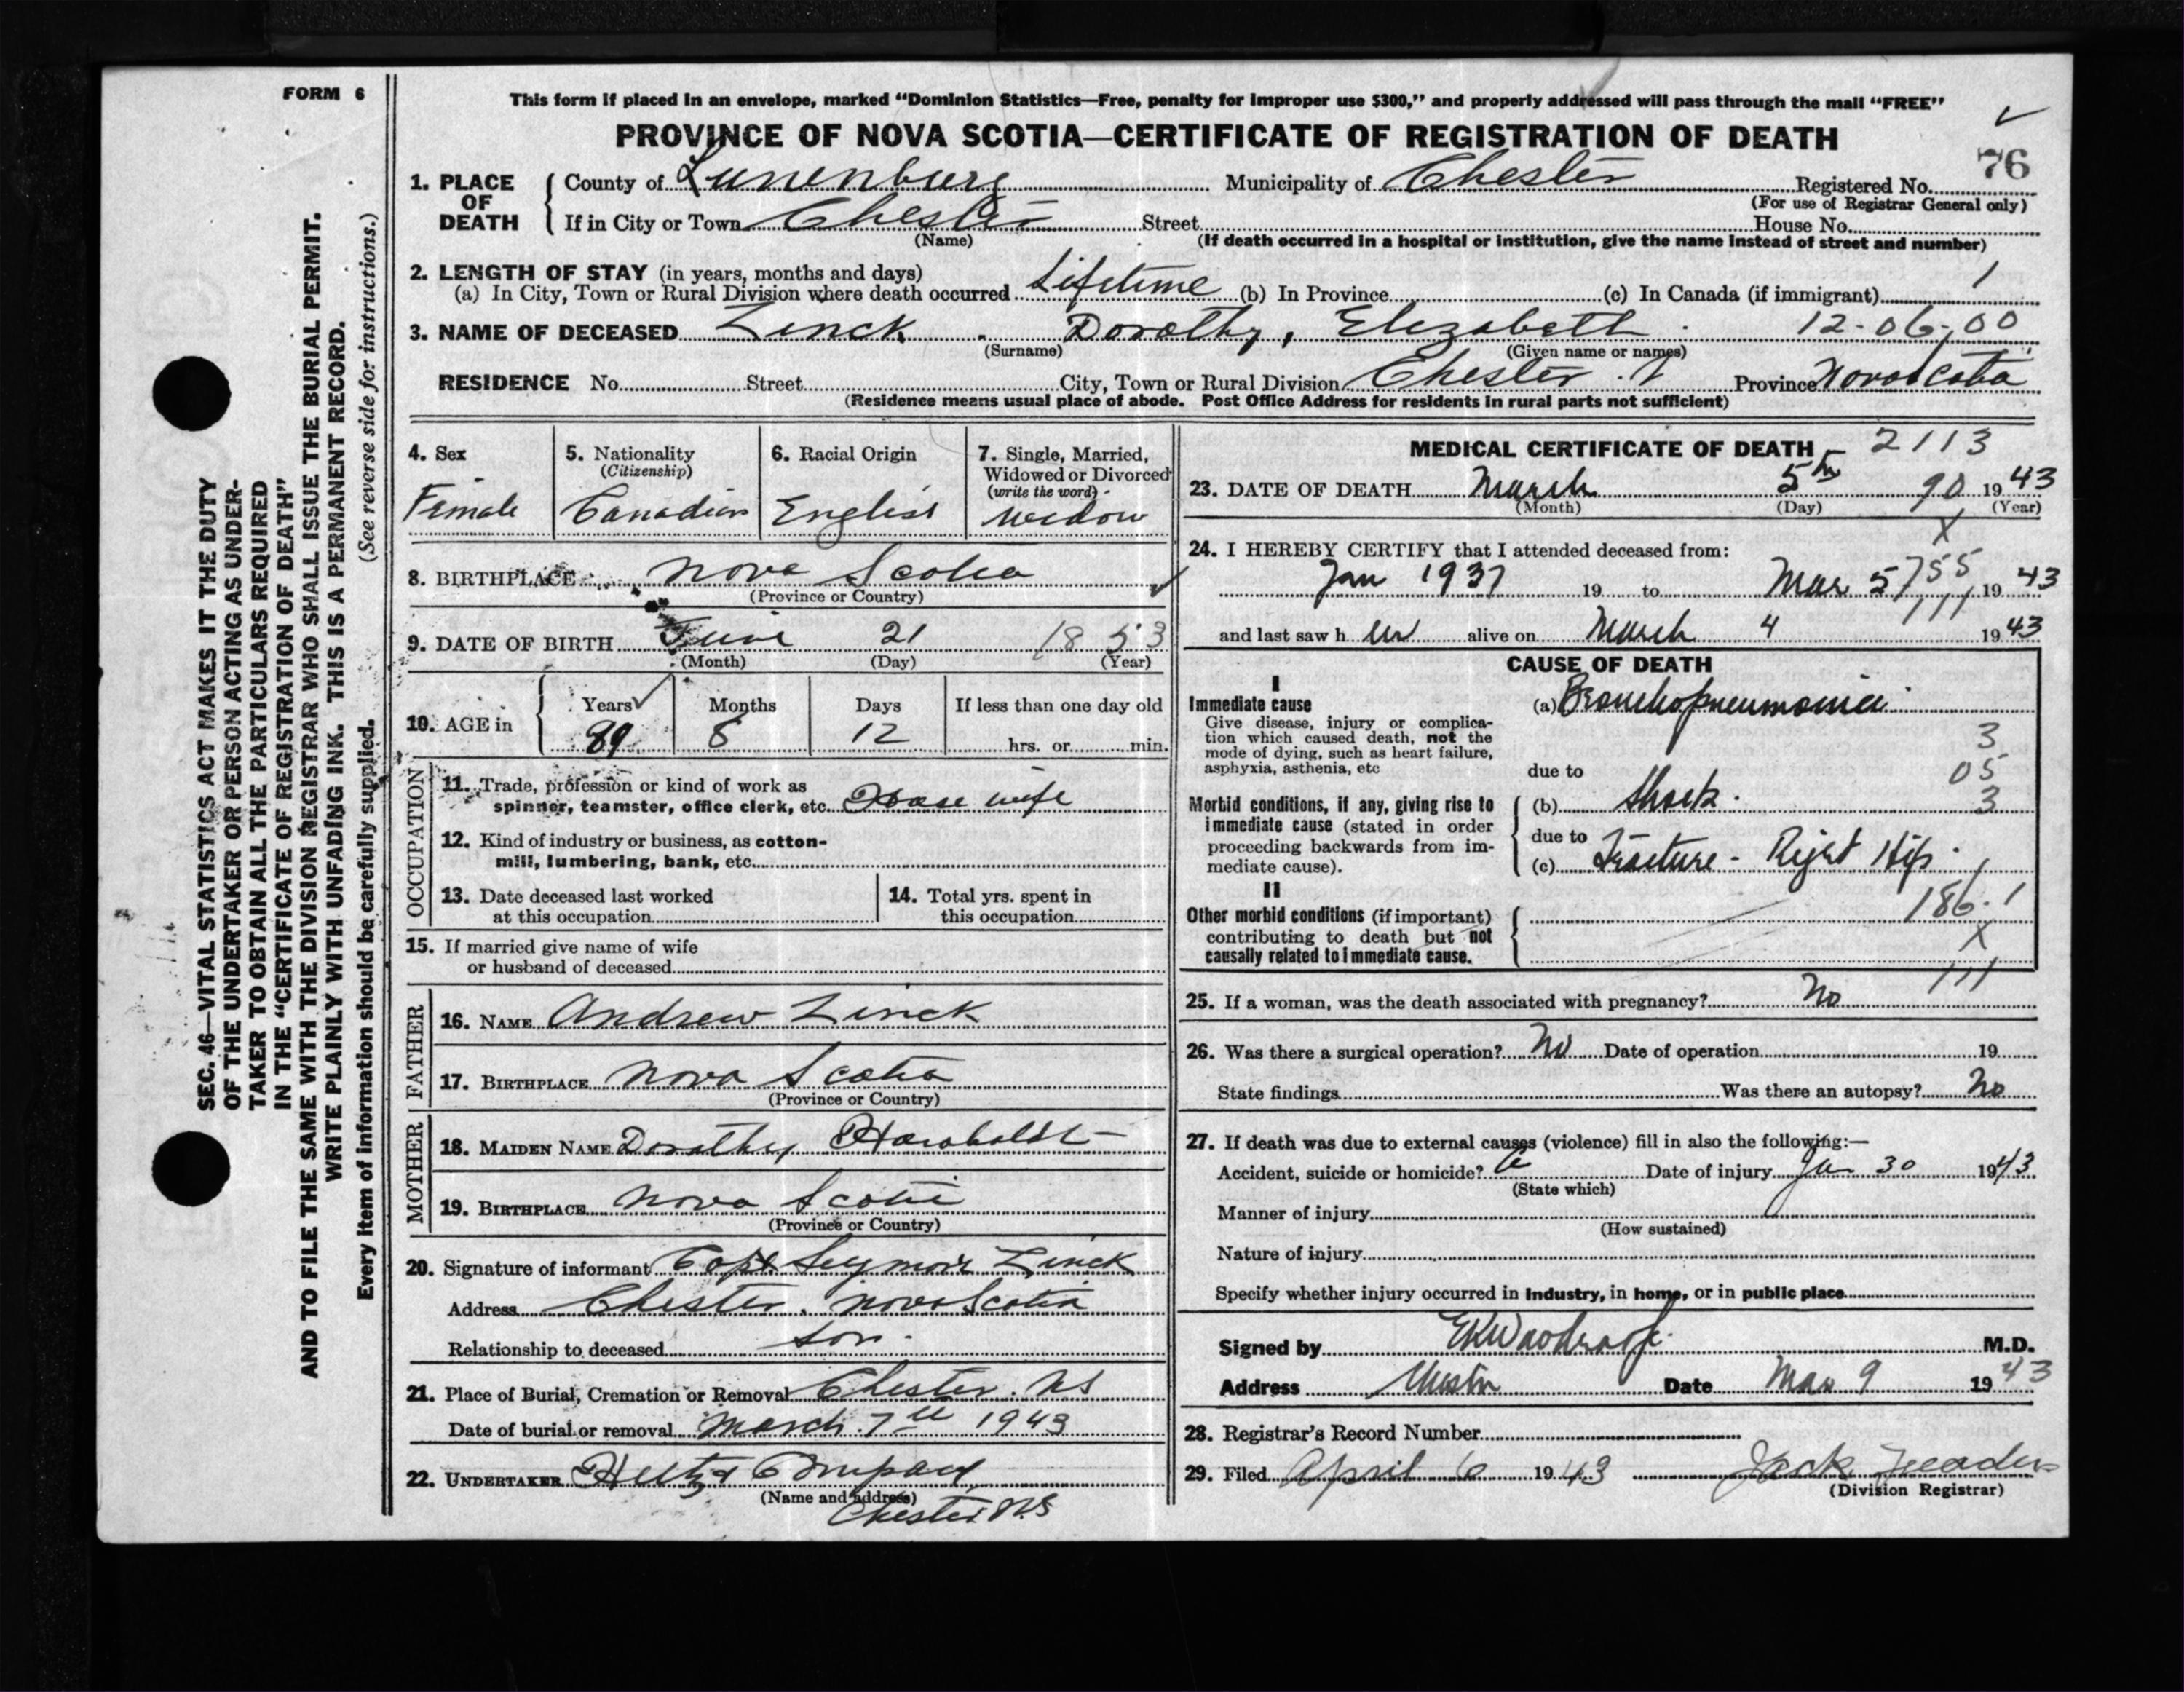 FORM 6
This form if placed in an envelope, marked "Dominion Statistics—Free, penalty for improper use $300," and properly addressed will pass through the mail "FREE"
PROVINCE OF NOVA SCOTIA—CERTIFICATE OF REGISTRATION OF DEATH
76
1. PLACE OF DEATH { County of Lunenburg Municipality of Chester Registered No.
(For use of Registrar General only)
If in City or Town Chester Street House No.
(Name) (If death occurred in a hospital or institution, give the name instead of street and number)
2. LENGTH OF STAY (in years, months and days) 1
(a) In City, Town or Rural Division where death occurred Lifetime (b) In Province (c) In Canada (if immigrant)
3. NAME OF DECEASED Zinck Dorothy, Elizabeth 12-06-00
(Surname) (Given name or names)
RESIDENCE No. Street City, Town or Rural Division Chester Province Nova Scotia
(Residence means usual place of abode. Post Office Address for residents in rural parts not sufficient)
4. Sex
Female
5. Nationality
(Citizenship)
Canadian
6. Racial Origin
English
7. Single, Married, Widowed or Divorced
(write the word)
Widow
8. BIRTHPLACE Nova Scotia
(Province or Country)
9. DATE OF BIRTH June 21 1853
(Month) (Day) (Year)
10. AGE in { Years Months Days If less than one day old
89 8 12 hrs. or min.
OCCUPATION
11. Trade, profession or kind of work as
spinner, teamster, office clerk, etc. House wife
12. Kind of industry or business, as cotton-
mill, lumbering, bank, etc.
13. Date deceased last worked
at this occupation
14. Total yrs. spent in
this occupation
15. If married give name of wife
or husband of deceased
FATHER
16. NAME Andrew Zinck
17. BIRTHPLACE Nova Scotia
(Province or Country)
MOTHER
18. MAIDEN NAME Dorothy
19. BIRTHPLACE Nova Scotia
(Province or Country)
20. Signature of informant Capt Seymour Zinck
Address Chester, Nova Scotia
Relationship to deceased son
21. Place of Burial, Cremation or Removal Chester. NS
Date of burial or removal March 7th 1943
22. UNDERTAKER Company
(Name and address)
Chester N.S
MEDICAL CERTIFICATE OF DEATH 2113
23. DATE OF DEATH March 5th 90 1943
(Month) (Day) (Year)
X
24. I HEREBY CERTIFY that I attended deceased from:
Jan 1937 19 to Mar 5 755 1943
111
and last saw her alive on March 4 1943
CAUSE OF DEATH
I
Immediate cause
Give disease, injury or complica-
tion which caused death, not the
mode of dying, such as heart failure,
asphyxia, asthenia, etc
(a) Bronchopneumonia
3
due to 05
Morbid conditions, if any, giving rise to
immediate cause (stated in order
proceeding backwards from im-
mediate cause).
(b) Shock. 3
due to
(c) Fracture - Right Hip.
II
186.1
Other morbid conditions (if important)
contributing to death but not
causally related to immediate cause.
X
111
25. If a woman, was the death associated with pregnancy? No
26. Was there a surgical operation? No Date of operation 19
State findings Was there an autopsy? No
27. If death was due to external causes (violence) fill in also the following:—
Accident, suicide or homicide? a Date of injury Jan 30 1943
(State which)
Manner of injury
(How sustained)
Nature of injury
Specify whether injury occurred in industry, in home, or in public place
Signed by M.D.
Address Chester Date Mar 9 1943
28. Registrar's Record Number
29. Filed April 6 1943 Jack
(Division Registrar)
SEC. 46—VITAL STATISTICS ACT MAKES IT THE DUTY
OF THE UNDERTAKER OR PERSON ACTING AS UNDER-
TAKER TO OBTAIN ALL THE PARTICULARS REQUIRED
IN THE "CERTIFICATE OF REGISTRATION OF DEATH"
AND TO FILE THE SAME WITH THE DIVISION REGISTRAR WHO SHALL ISSUE THE BURIAL PERMIT.
WRITE PLAINLY WITH UNFADING INK. THIS IS A PERMANENT RECORD.
Every item of information should be carefully supplied. (See reverse side for instructions.)